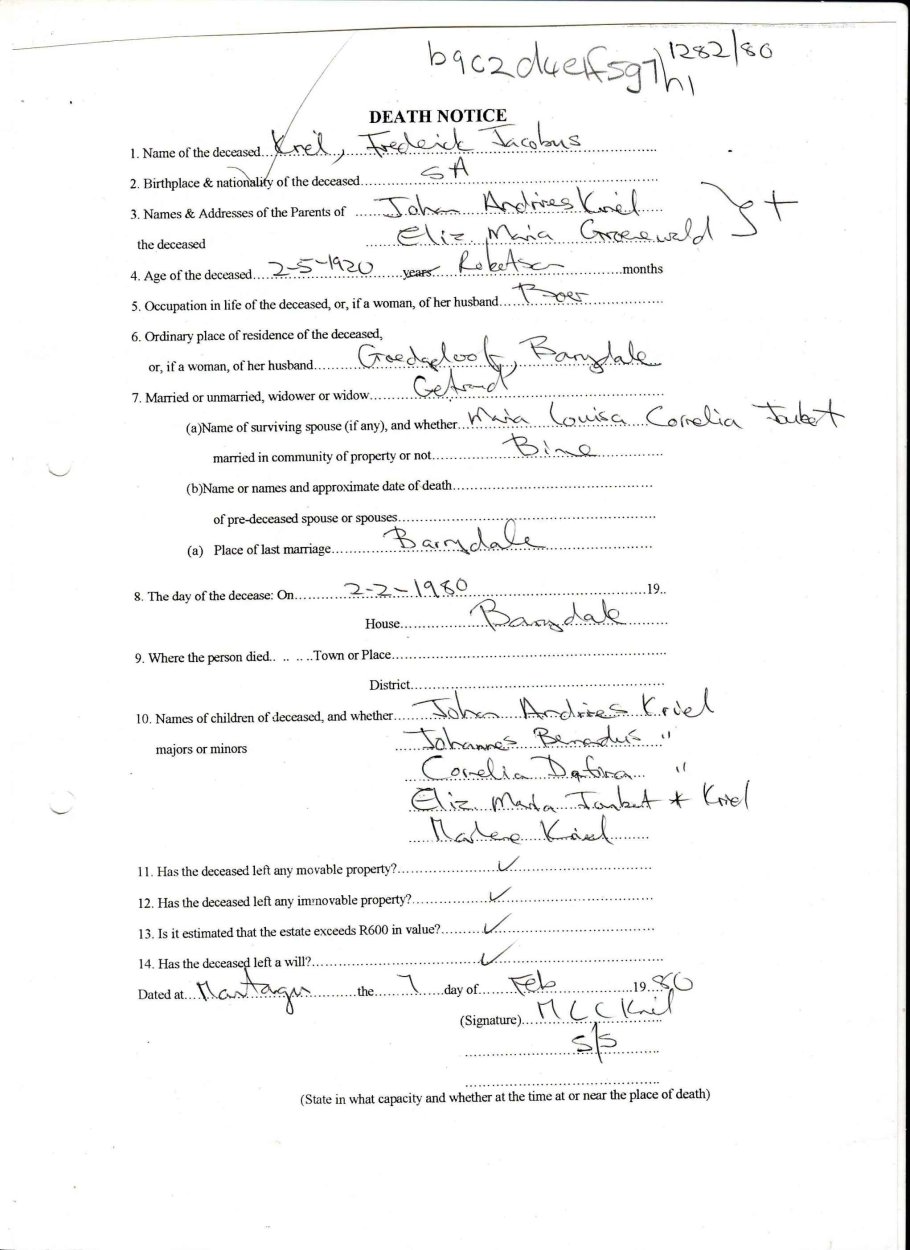 b9c2d4e1f5g7h1 1282/80
DEATH NOTICE
1. Name of the deceased...Kriel, Frederick Jacobus
2. Birthplace & nationality of the deceased...SA
3. Names & Addresses of the Parents of ...Johan Andries Kriel
the deceased ...Eliz Maria Groenewald } +
4. Age of the deceased...2-5-1920 years Robertson ...months
5. Occupation in life of the deceased, or, if a woman, of her husband...Boer
6. Ordinary place of residence of the deceased,
or, if a woman, of her husband...Goedgeloof, Barrydale
7. Married or unmarried, widower or widow...Getroud
(a)Name of surviving spouse (if any), and whether...Maria Louisa Cornelia Joubert
married in community of property or not...Bine
(b)Name or names and approximate date of death...
of pre-deceased spouse or spouses...
(a) Place of last marriage...Barrydale
8. The day of the decease: On...2-2-1980...19..
House...Barrydale
9. Where the person died.. .. .. ..Town or Place...
District...
10. Names of children of deceased, and whether...Johan Andries Kriel
majors or minors ...Johannes Benadus "
Cornelia "
Eliz Maria Joubert * Kriel
Marlene Kriel
11. Has the deceased left any movable property?...✓
12. Has the deceased left any immovable property?...✓
13. Is it estimated that the estate exceeds R600 in value?...✓
14. Has the deceased left a will?...✓
Dated at...Montagu...the...7...day of...Feb...19.80
(Signature)...M L C Kriel
s/s
(State in what capacity and whether at the time at or near the place of death)